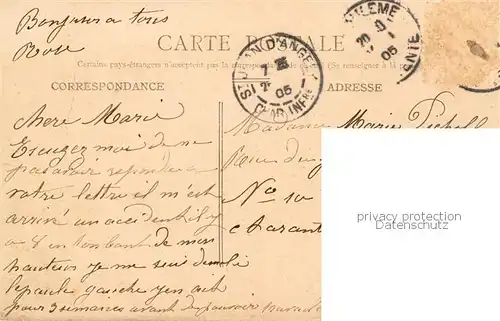 Bonjours a tous
Rose
CARTE POSTALE
Certains pays étrangers n'acceptent pas la correspondance de ce côté (Se renseigner à la poste)
CORRESPONDANCE
ADRESSE
ST JEAN D'ANGELY
7
05
CHAR INFRE
05
chere Marie
Escuzez moi de ne
pas avoir repondre a
votre lettre il m'est
arrivé un accident il y
a 8 en tombant de mon
hauteur je me suis demli
lepaule gauche j'en ait
pour 3 semaines avant de pouvoir
Madame Marie
Rue du
No 10
charant
privacy protection
Datenschutz